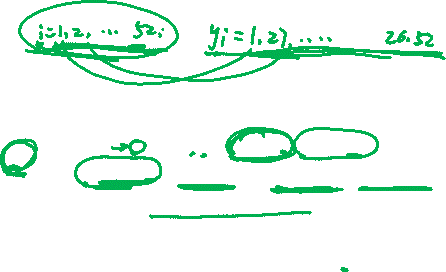 i=1,2, ... 52; yi = 1,27, .... 26.52